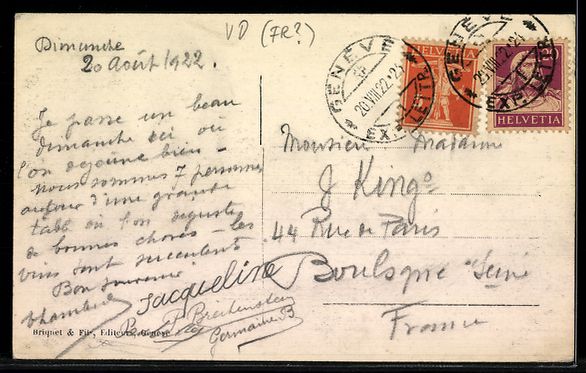 VD (FR?)
Dimanche
20 Août 1922.
Je passe un beau
dimanche ici où
l'on déjeune bien -
nous sommes 7 personnes
autour d'une grande
table où l'on déguste
de bonnes choses - les
vins sont succulents
Bon souvenir
Jacqueline
P. Breitenstein
Germaine B
Briquet & Fils, Editeurs, Genève
GENÈVE
20.VIII.22.24
EXP. LETTR.
HELVETIA
GENÈVE
20.VIII.22.24
EXP. LETTR.
HELVETIA
Monsieur Madame
J King
44 Rue de Paris
Boulogne Seine
France